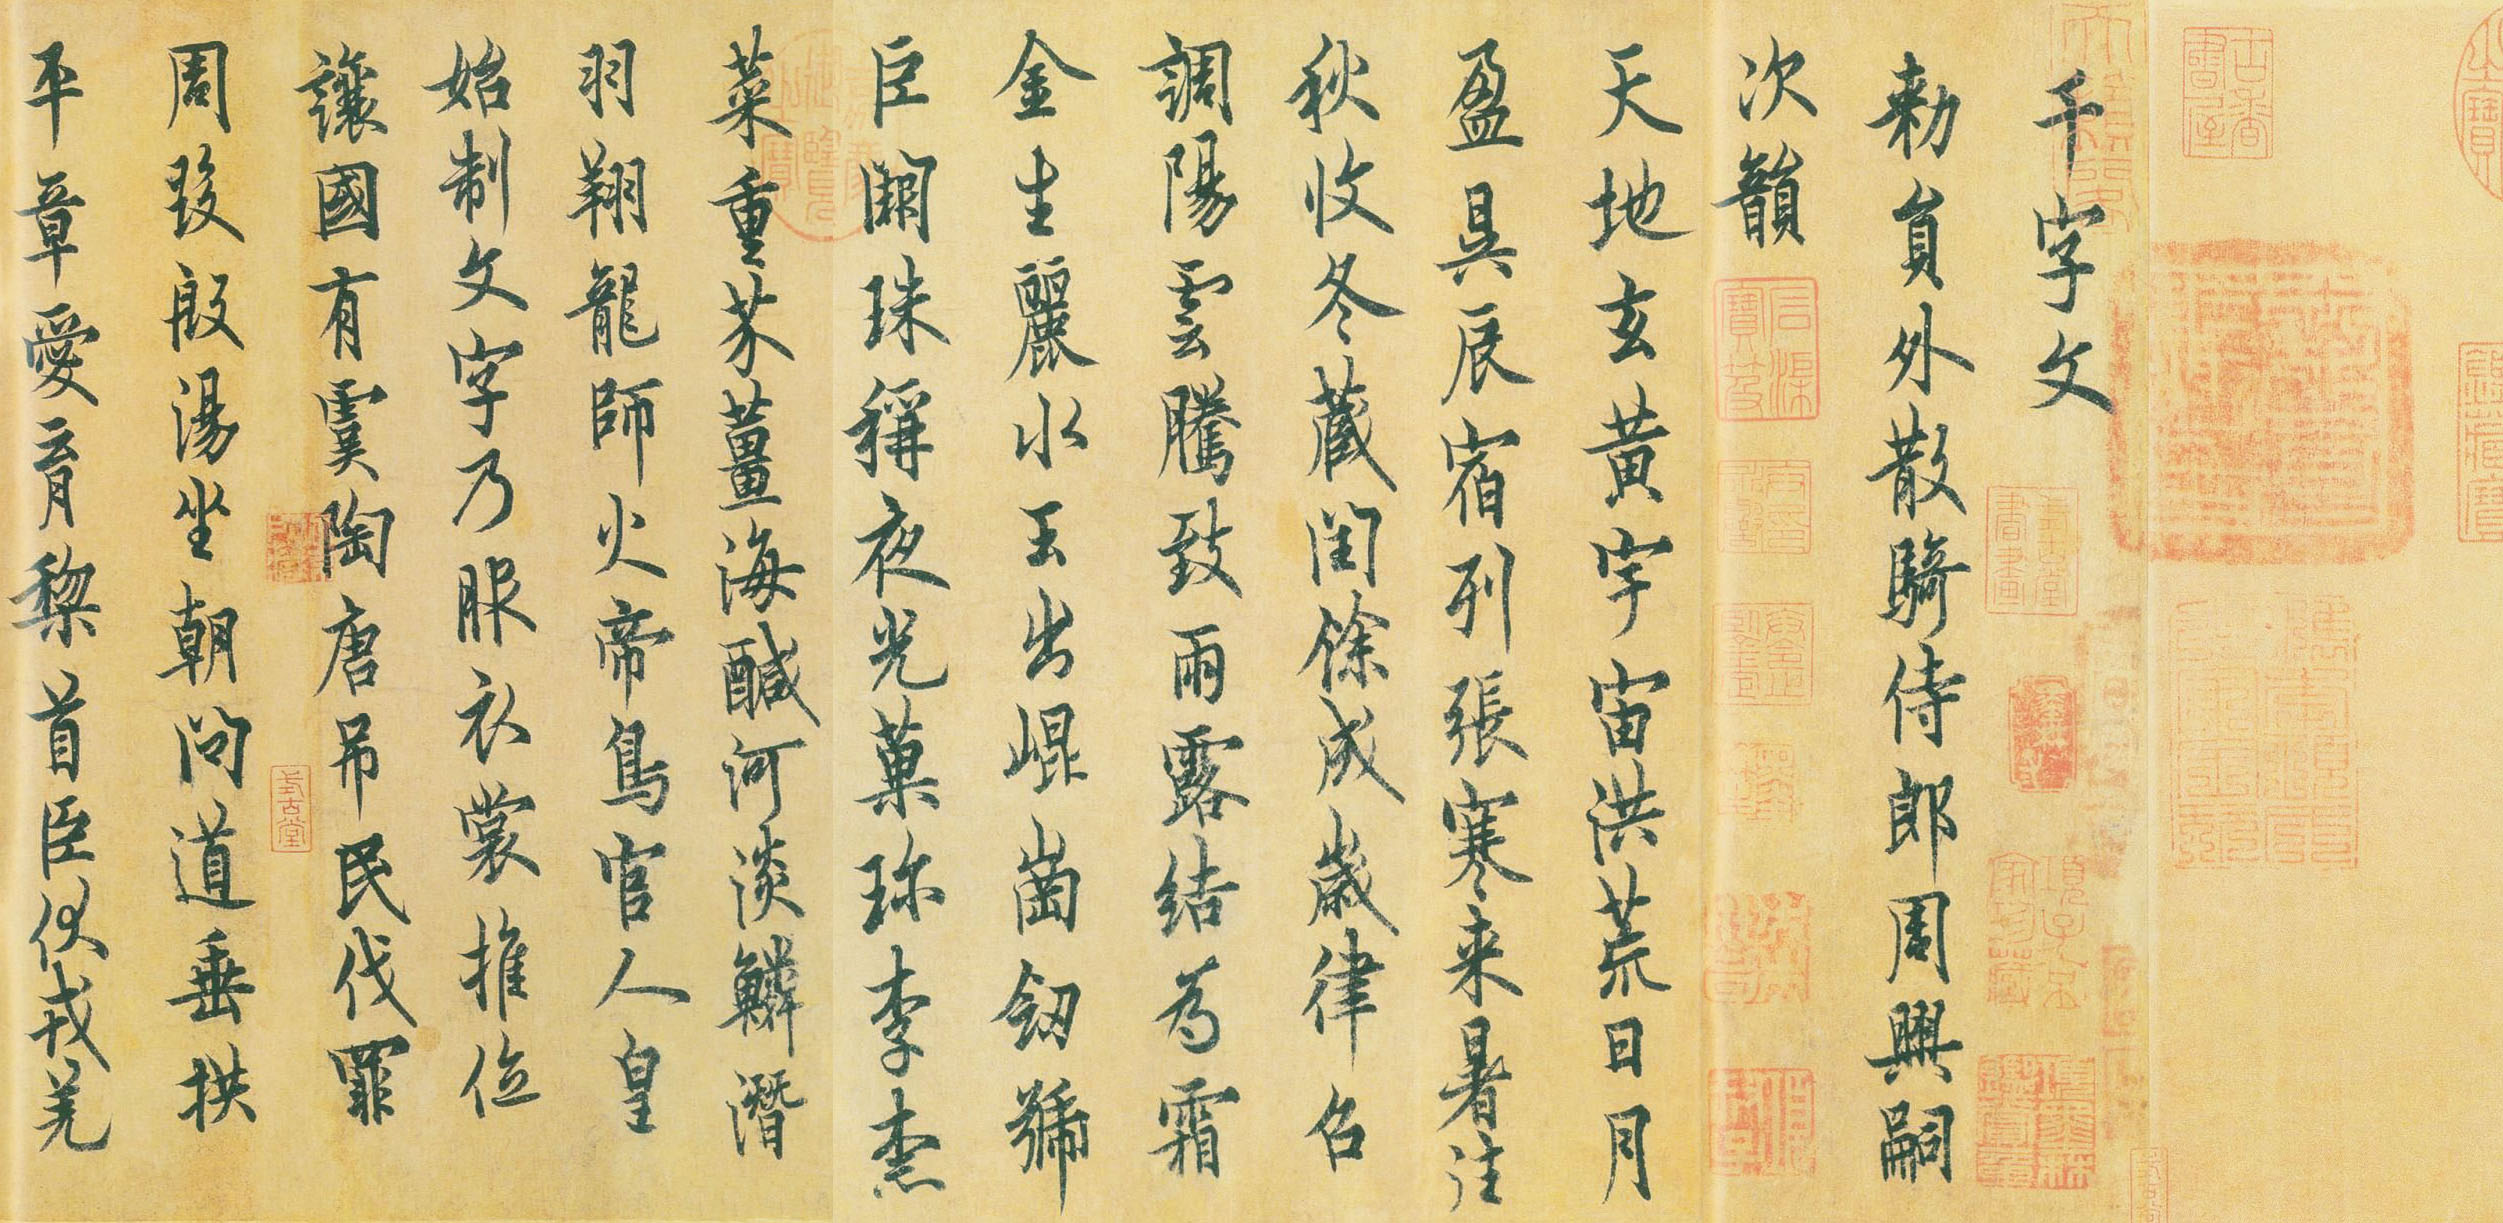 千字文
勅員外散騎侍郎周興嗣
次韻
天地玄黄宇宙洪荒日月
盈昃辰宿列張寒来暑往
秋收冬蔵閏餘成歲律召
調陽雲騰致雨露結為霜
金生麗水玉出崐崗劒號
巨闕珠稱夜光菓珎李柰
菜重芥薑海醎河淡鱗潛
羽翔龍師火帝鳥官人皇
始制文字乃服衣裳推位
讓國有虞陶唐吊民伐罪
周發殷湯坐朝問道垂拱
平章愛育黎首臣伏戎羌
式古堂